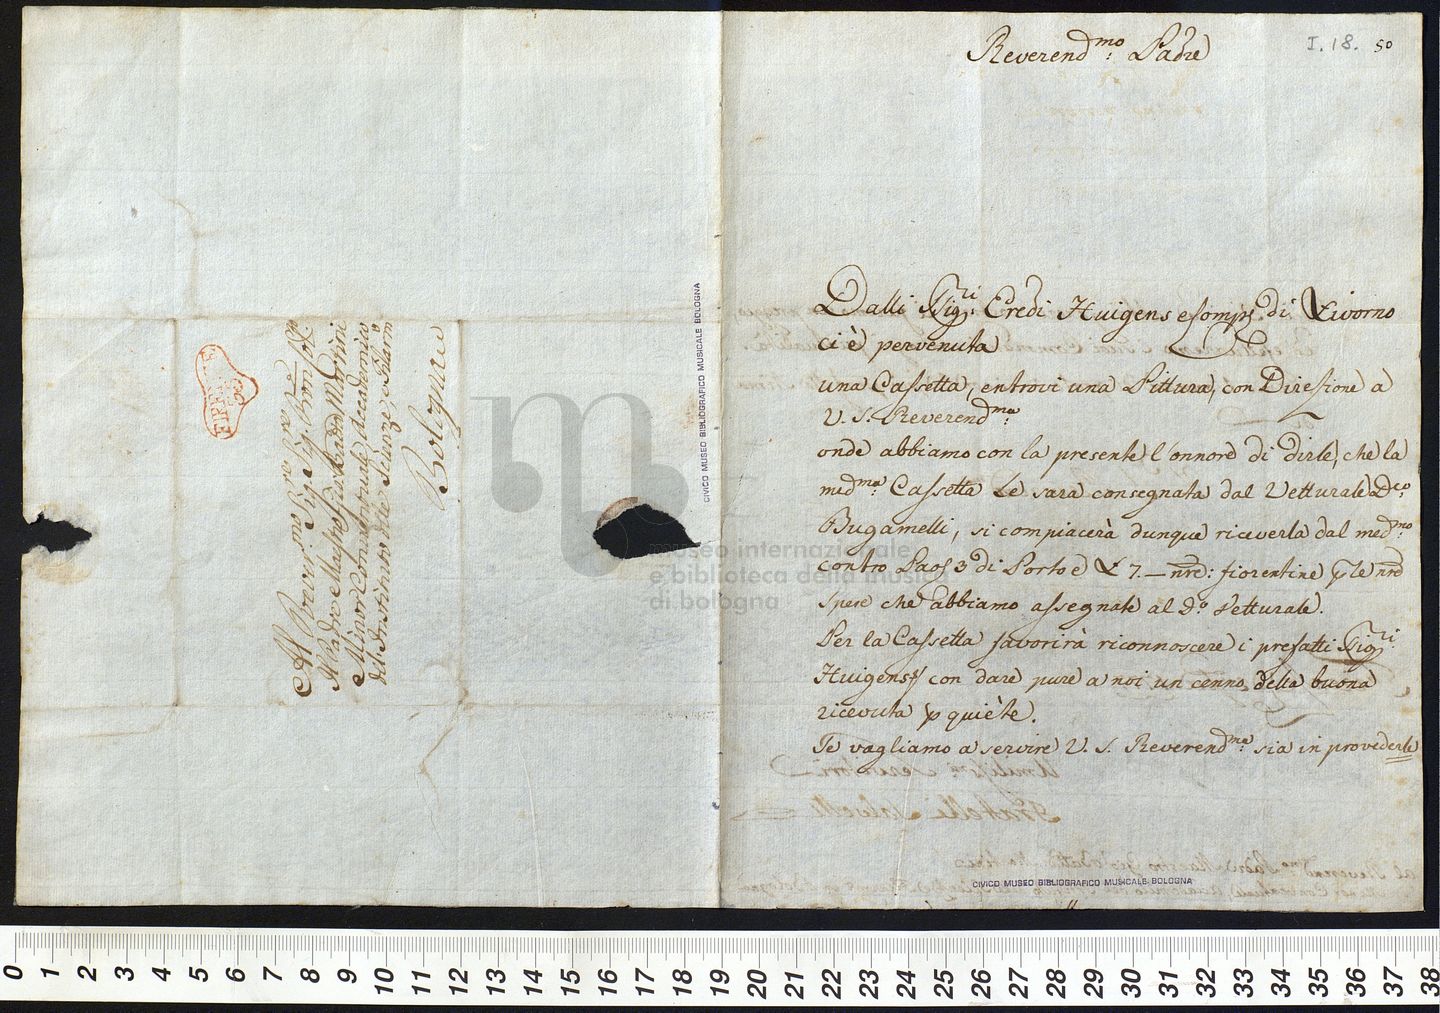 I. 18. 50
Reverend.mo Padre
Dalli Sig.ri Eredi Huigens e Comp.i di Livorno
ci è pervenuta
una Cassetta, entrovi una Pittura, con Diresione a
V. S. Reverend.ma
onde abbiamo con la presente l'onnore di dirle, che la
med.ma Cassetta Le sarà consegnata dal Vetturale D.co
Bugamelli, si compiacerà dunque riceverla dal med.mo
contro Paoi 3 di Porto e £ 7. — nre: fiorentine p le nre
spese che abbiamo assegnate al d.o Vetturale.
Per la Cassetta favorirà riconnoscere i prefatti Sig.ri
Huigens, con dare pure a noi un cenno della buona
ricevuta p quiete.
Se vagliamo a servire V. S. Reverend.ma sia in provederle
Al Rever.mo
Padre Maestro Gio: Batta Martini
Minor Conventuale Accademico
del Instituto delle Scienze, e Filarm.o
Bologna
FIRENZE
CIVICO MUSEO BIBLIOGRAFICO MUSICALE BOLOGNA
CIVICO MUSEO BIBLIOGRAFICO MUSICALE BOLOGNA
museo internazionale
e biblioteca della musica
di bologna
Fratelli Salvetti
0 1 2 3 4 5 6 7 8 9 10 11 12 13 14 15 16 17 18 19 20 21 22 23 24 25 26 27 28 29 30 31 32 33 34 35 36 37 38